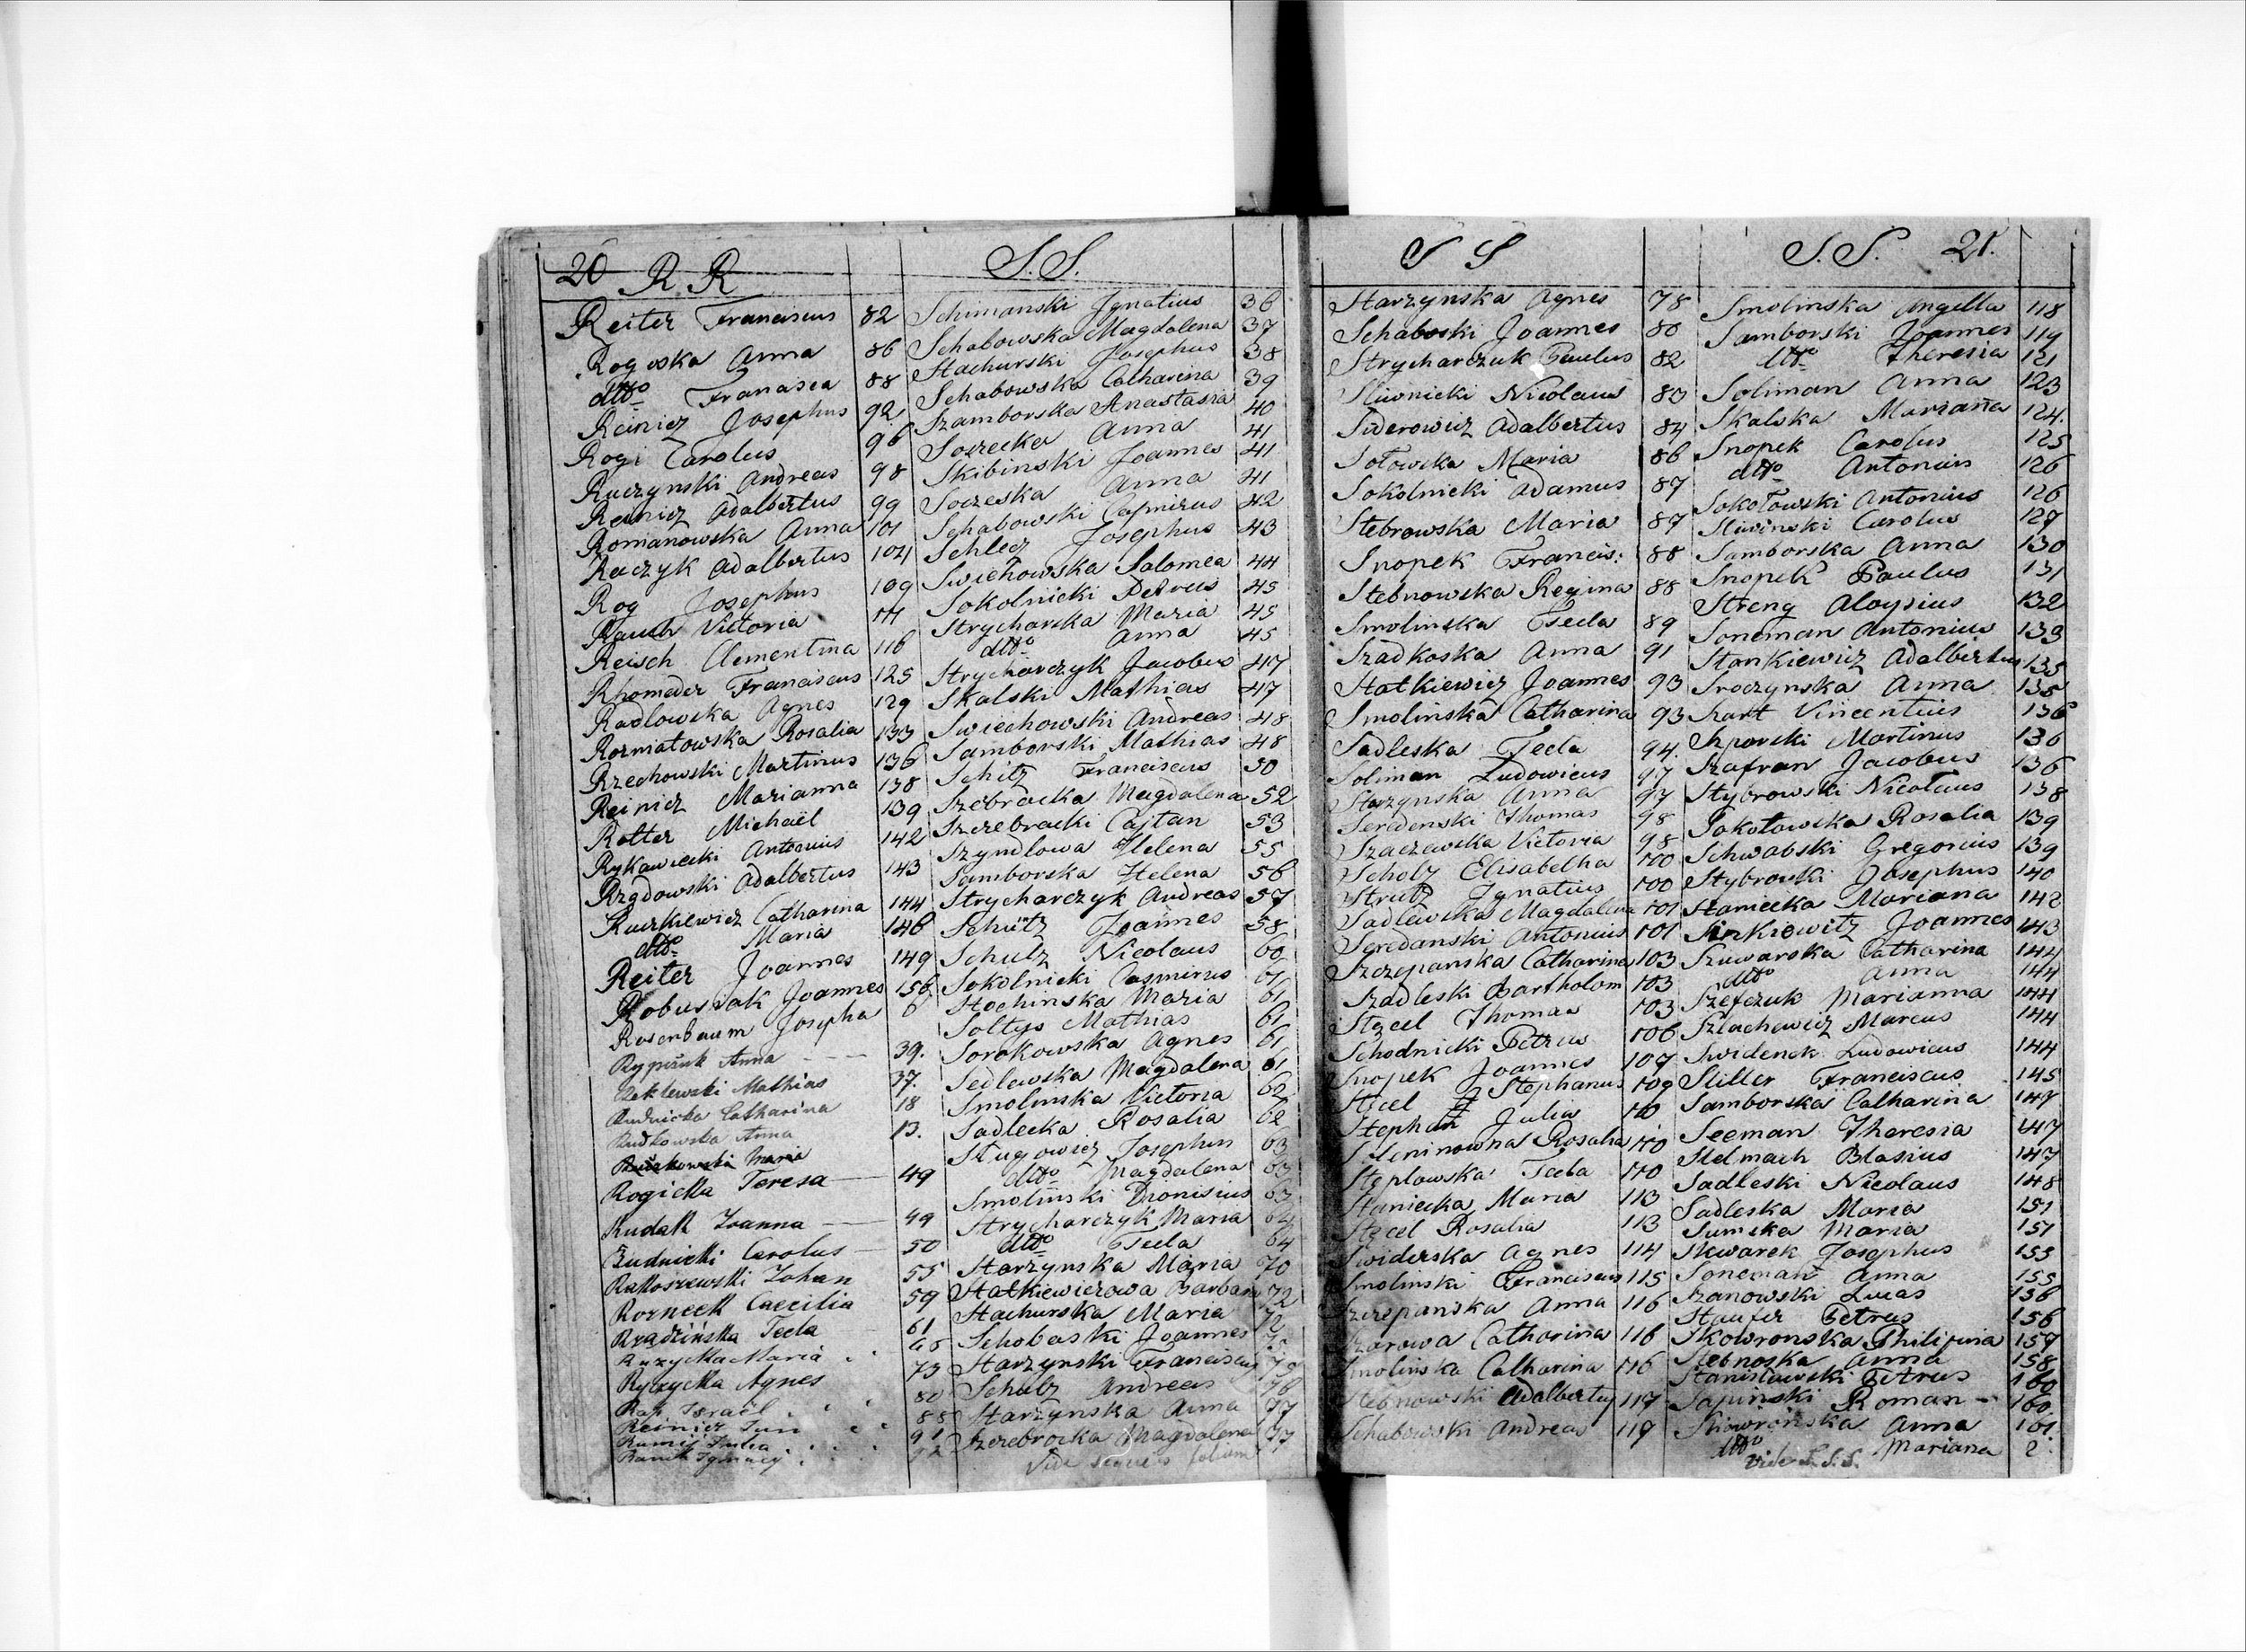 20 R. R
Reiter Franciscus 82
Rogoska Anna 86
dtto Francisca 88
Reinicz Josephus 92
Rogi Carolus 96
Ruczynski Andreas 98
Reinicz Adalbertus 99
Romanowska Anna 101
Raczyk Adalbertus 104
Rog Josephus 109
Rauch Victoria 111
Reisch Clementina 116
Rhomeder Franciscus 125
Radlowska Agnes 129
Rozniatowska Rosalia 133
Rzechowski Martinus 136
Reinicz Marianna 138
Rotter Michaël 139
Rykawiecki Antonius 142
Rzadowski Adalbertus 143
Ruszkiewicz Catharina 144
dtto Maria 146
Reiter Joannes 149
Robusiak Joannes 156
Rosenbaum Josepha 6
Anna 39.
Mathias 37.
Rudnicka Catharina 18
Rudkowska Anna 13.
Maria
Rogicka Teresa 49
Rudak Joanna 49
Rudnicki Carolus 50
Rakoszewski Johan 55
Rozneck Caecilia 59
Rządzińska Tecla 61
Ruzycka Maria 65
Ryzycka Agnes 73
Rap Israël 80
Reinicz Jan 88
Julia 91
Ignacy 92
S. S.
Schimanski Ignatius 36
Schabowska Magdalena 37
Stachurski Josephus 38
Schabowska Catharina 39
Szamborska Anastasia 40
Soszecka Anna 41
Skibinski Joannes 41
Soczeska Anna 41
Schabowski Casmirus 42
Schlecz Josephus 43
Swiechowska Salomea 44
Sokolnicki Petrus 45
Strycharska Maria 45
dtto Anna 45
Strycharczyk Jacobus 47
Skalski Mathias 47
Swiechowski Andreas 48
Samborski Mathias 48
Schitz Franciscus 50
Szebracka Magdalena 52
Szczebracki Cajtan 53
Szyndlowa Helena 55
Samborska Helena 56
Strycharczyk Andreas 57
Schütz Joannes 58
Schulz Nicolaus 60
Sokolnicki Casmirus 61
Stochinska Maria 61
Soltys Mathias 61
Sorokowska Agnes 61
Sedlewska Magdalena 61
Smolinska Victoria 62
Sadlecka Rosalia 62
Slugowicz Josephus 63
dtto Magdalena 63
Smolinski Dionisius 63
Strycharczyk Maria 64
dtto Tecla 64
Starzynska Maria 70
Statkiewiczowa Barbara 72
Stachurska Maria 72
Schobaski Joannes
Starzynski Franciscus 75
Schulz Andreas 76
Starzynska Anna 77
Szczebrocka Magdalena 77
Vide sequens folium
S S
Starzynska Agnes 78
Schaboski Joannes 80
Strycharczuk Paulus 82
Sliwnicki Nicolaus 83
Siderowicz Adalbertus 84
Sotowska Maria 86
Sokolnicki Adamus 87
Stebrowska Maria 87
Snopek Francis: 88
Stebnowska Regina 88
Smolinska Tecla 89
Szadkoska Anna 91
Statkiewicz Joannes 93
Smolinska Catharina 93
Sadleska Tecla 94
Soliman Ludowicus 97
Starzynska Anna 97
Seredenski Thomas 98
Szaczawska Victoria 98
Scholz Elisabetha 100
Strutz Ignatius 100
Sadlewska Magdalena 101
Seredanski Antonius 101
Szczepanska Catharina 103
Szadleski Bartholom 103
Stącel Thomas 103
Schodnicki Petrus 106
Snopek Joannes 107
Stącel Stephanus 109
Stephan Julia 110
Rosalia 110
Stęplowska Tecla 110
Staniecka Maria 113
Stącel Rosalia 113
Swiderska Agnes 114
Smolinski Franciscus 115
Szczepanska Anna 116
Szarowa Catharina 116
Smolinska Catharina 116
Stebnowski Adalbertus 117
Schabowski Andreas 119
S. S. 21.
Smolinska Angella 118
Samborski Joannes 119
dtto Theresia 121
Soliman Anna 123
Skalska Marianna 124
Snopek Carolus 125
dtto Antonius 126
Sokołowski Antonius 126
Sliwinski Carolus 127
Samborska Anna 130
Snopek Paulus 131
Streng Aloysius 132
Soneman Antonius 133
Stankiewicz Adalbertus 135
Sroczynska Anna 135
Szart Vincentius 136
Szporski Martinus 136
Szafran Jacobus 136
Stybrowski Nicolaus 138
Sokołowska Rosalia 139
Schwabski Gregorius 139
Stybrowski Josephus 140
Stamecka Mariana 142
Sinkiewitz Joannes 143
Szuwarska Catharina 144
dtto Anna 144
Szefczuk Marianna 144
Szlachewicz Marcus 144
Swidenek Ludowicus 144
Stiller Franciscus 145
Samborska Catharina 147
Seeman Theresia 147
Stelmach Blasius 147
Sadleski Nicolaus 148
Sadleska Maria 151
Sumska Maria 151
Skwarek Josephus 155
Soneman Anna 155
Szanowski Lucas 156
Staufer Petrus 156
Skowronska Philipina 157
Stebnoska Anna 158
Stanislawski Petrus 160
Sapinski Roman 160
Skowronska Anna 161
dtto Mariana 2
vide S. S. S.